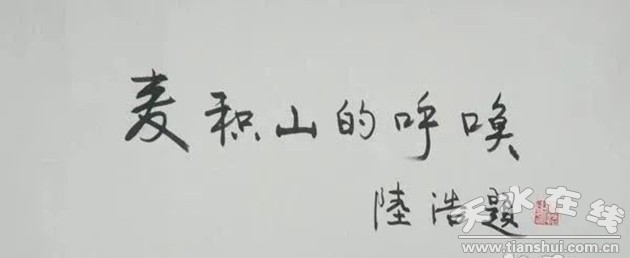 麦积山的呼唤
陸浩题
天水在线
www.tianshui.com.cn